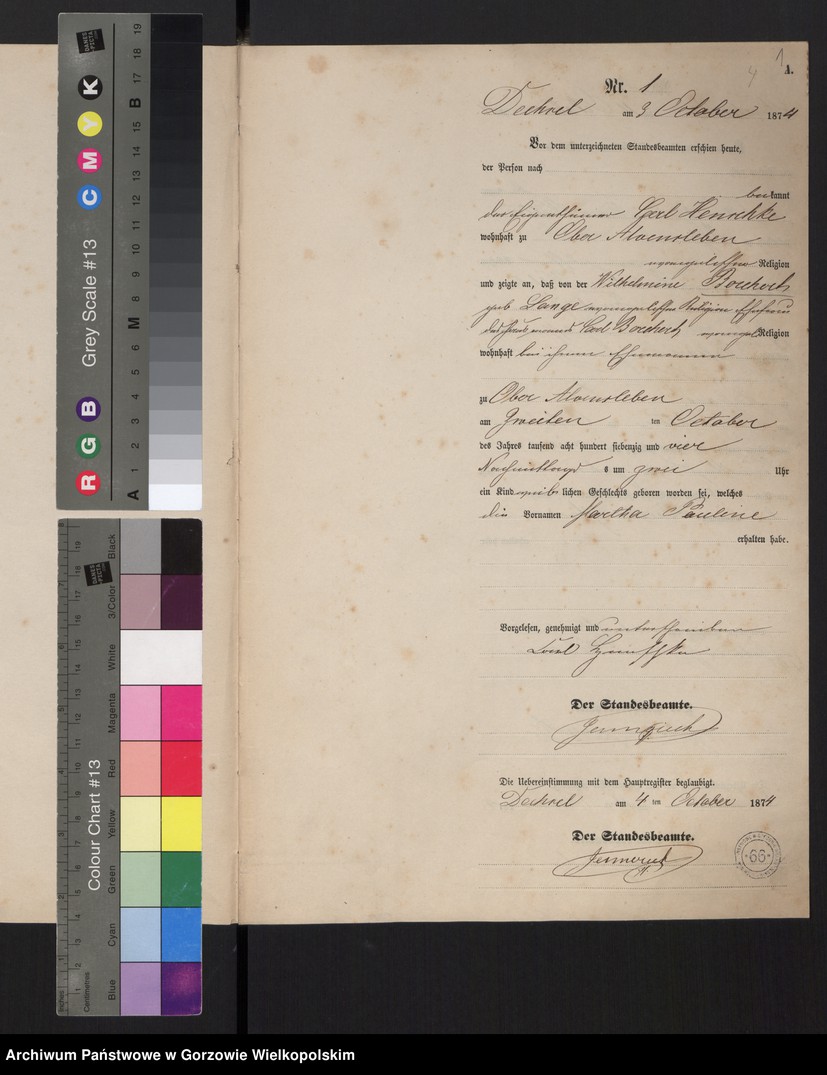 A.
4
1
Nr. 1
Dechsel am 3 October 1874
Vor dem unterzeichneten Standesbeamten erschien heute,
der Person nach
bekannt
der Eigenthümer Carl Henschke
wohnhaft zu Ober Alvensleben
evangelischer Religion
und zeigte an, daß von der Wilhelmine Borchert
geb Lange evangelischer Religion Ehefrau
des Carl Borchert, evangel Religion
wohnhaft bei ihrem Ehemanne
zu Ober Alvensleben
am Zweiten ten October
des Jahres tausend acht hundert siebenzig und vier
Nachmittags s um zwei Uhr
ein Kind weiblichen Geschlechts geboren worden sei, welches
die Vornamen Martha Pauline
erhalten habe.
Vorgelesen, genehmigt und unterschrieben
Carl Henschke
Der Standesbeamte.
Die Uebereinstimmung mit dem Hauptregister beglaubigt.
Dechsel am 4 ten October 1874
Der Standesbeamte.
66
DANES PICTA
Grey Scale #13
R G B C M Y K
A 1 2 3 4 5 6 M 8 9 10 11 12 13 14 15 B 17 18 19
DANES PICTA
Colour Chart #13
Black
3/Color
White
Magenta
Red
Yellow
Green
Cyan
Blue
Inches
Centimetres
Archiwum Państwowe w Gorzowie Wielkopolskim